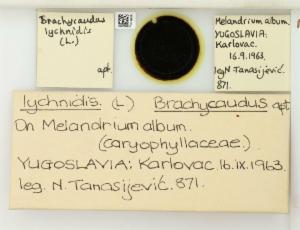 Brachycaudus
lychnidis
(L.)
apt.
Melandrium album.
YUGOSLAVIA:
Karlovac.
16.9.1963.
leg N. Tanasijević.
871.
lychnidis. (L) Brachycaudus apt
On Melandrium album.
(caryophyllaceae.)
YUGOSLAVIA: Karlovac. 16.ix.1963.
leg. N. Tanasijević. 871.